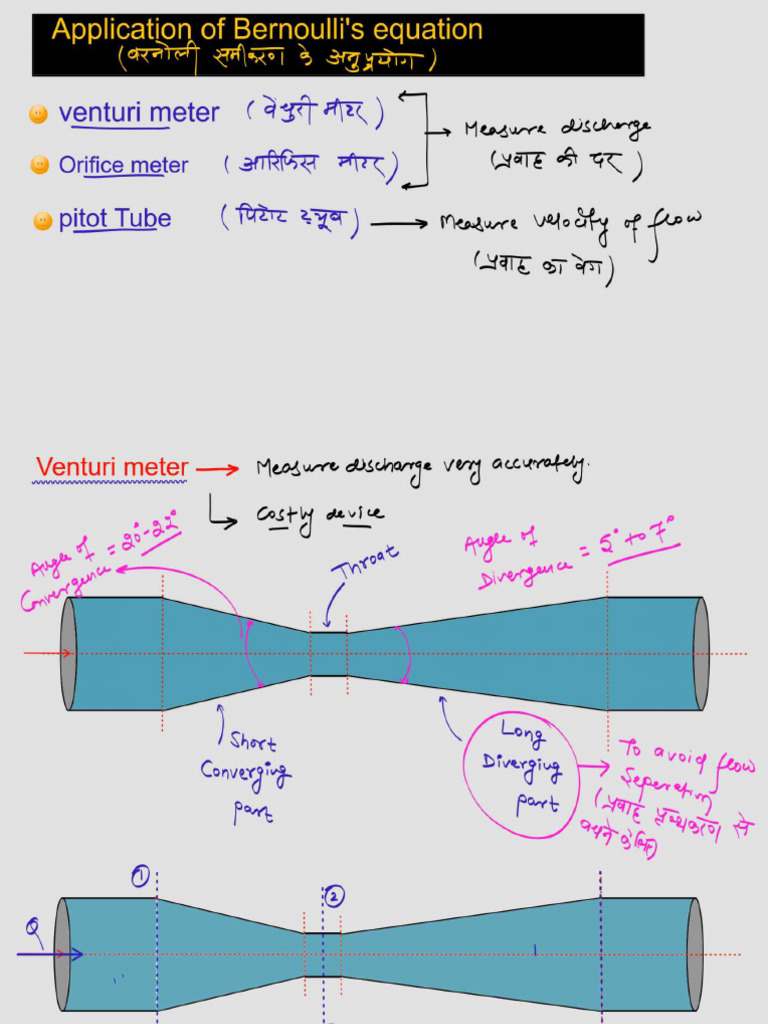 Application of Bernoulli's equation
(बरनोली समीकरण के अनुप्रयोग)
venturi meter (वेंचुरी मीटर)
Orifice meter (आरिफिस मीटर)
→ Measure discharge
(प्रवाह की दर)
pitot Tube (पिटोट ट्यूब) → Measure velocity of flow
(प्रवाह का वेग)
Venturi meter → Measure discharge very accurately.
Costly device
Angle of
Convergence = 20°-22°
Throat
Angle of
Divergence = 5° to 7°
Short
Converging
part
Long
Diverging
part
To avoid flow
Seperation
(प्रवाह पृथ्यकरण से
बचने के लिए)
①
②
Q